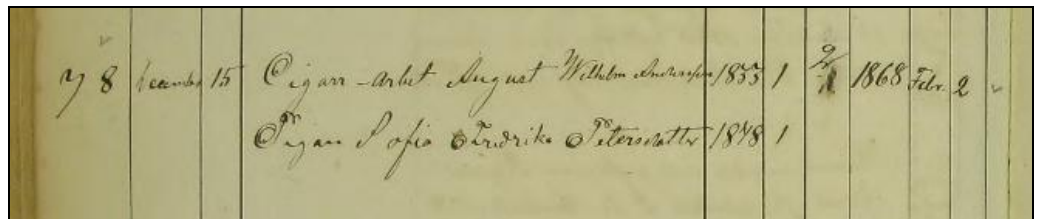 7 8 December 15 Cigarr-arbet August Wilhelm Andersson 1833 1 1868 Febr. 2
Pigan Sofia Fredrika Petersdotter 1848 1